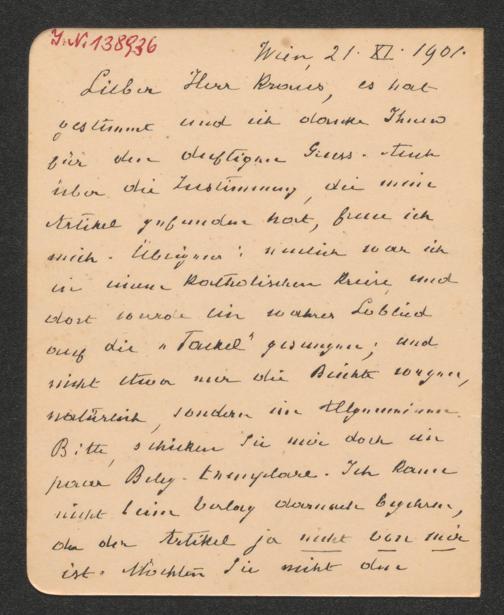 I.N. 138936
Wien, 21. XI. 1901.
Lieber Herr Kraus, es hat
gestimmt und ich danke Ihnen
für den duftigen Gruss. Auch
über die Zustimmung, die mein
Artikel gefunden hat, freue ich
mich. Übrigens: neulich war ich
in einem katholischen Kreise und
dort wurde ein wahres Loblied
auf die „Fackel" gesungen; und
nicht etwa nur die Beichte wegen,
natürlich, sondern im Allgemeinen.
Bitte, schicken Sie mir doch ein
paar Beleg-Exemplare. Ich kann
nicht beim Verlag darnach begehren,
da der Artikel ja nicht von mir
ist. Möchten Sie nicht den